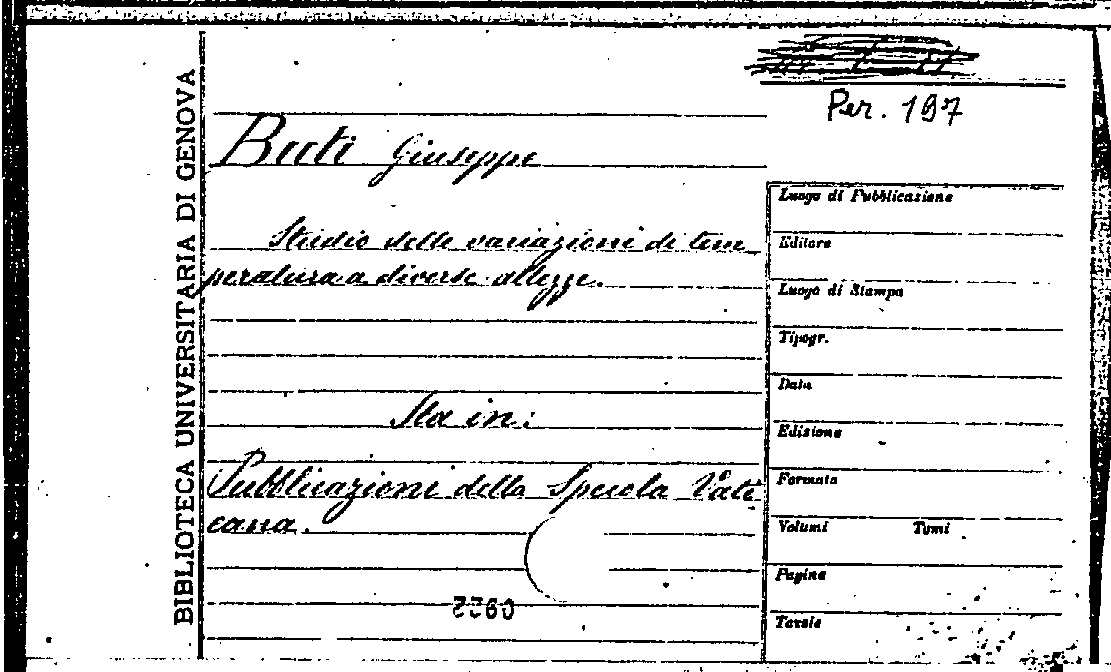 BIBLIOTECA UNIVERSITARIA DI GENOVA
Per. 197
Buti Giuseppe
Studio delle variazioni di tem
peratura a diverse altezze.
Sta in:
Pubblicazioni della Specola Vati
cana.
Luogo di Pubblicazione
Editore
Luogo di Stampa
Tipogr.
Data
Edizione
Formato
Volumi Tomi
Pagine
Tavole